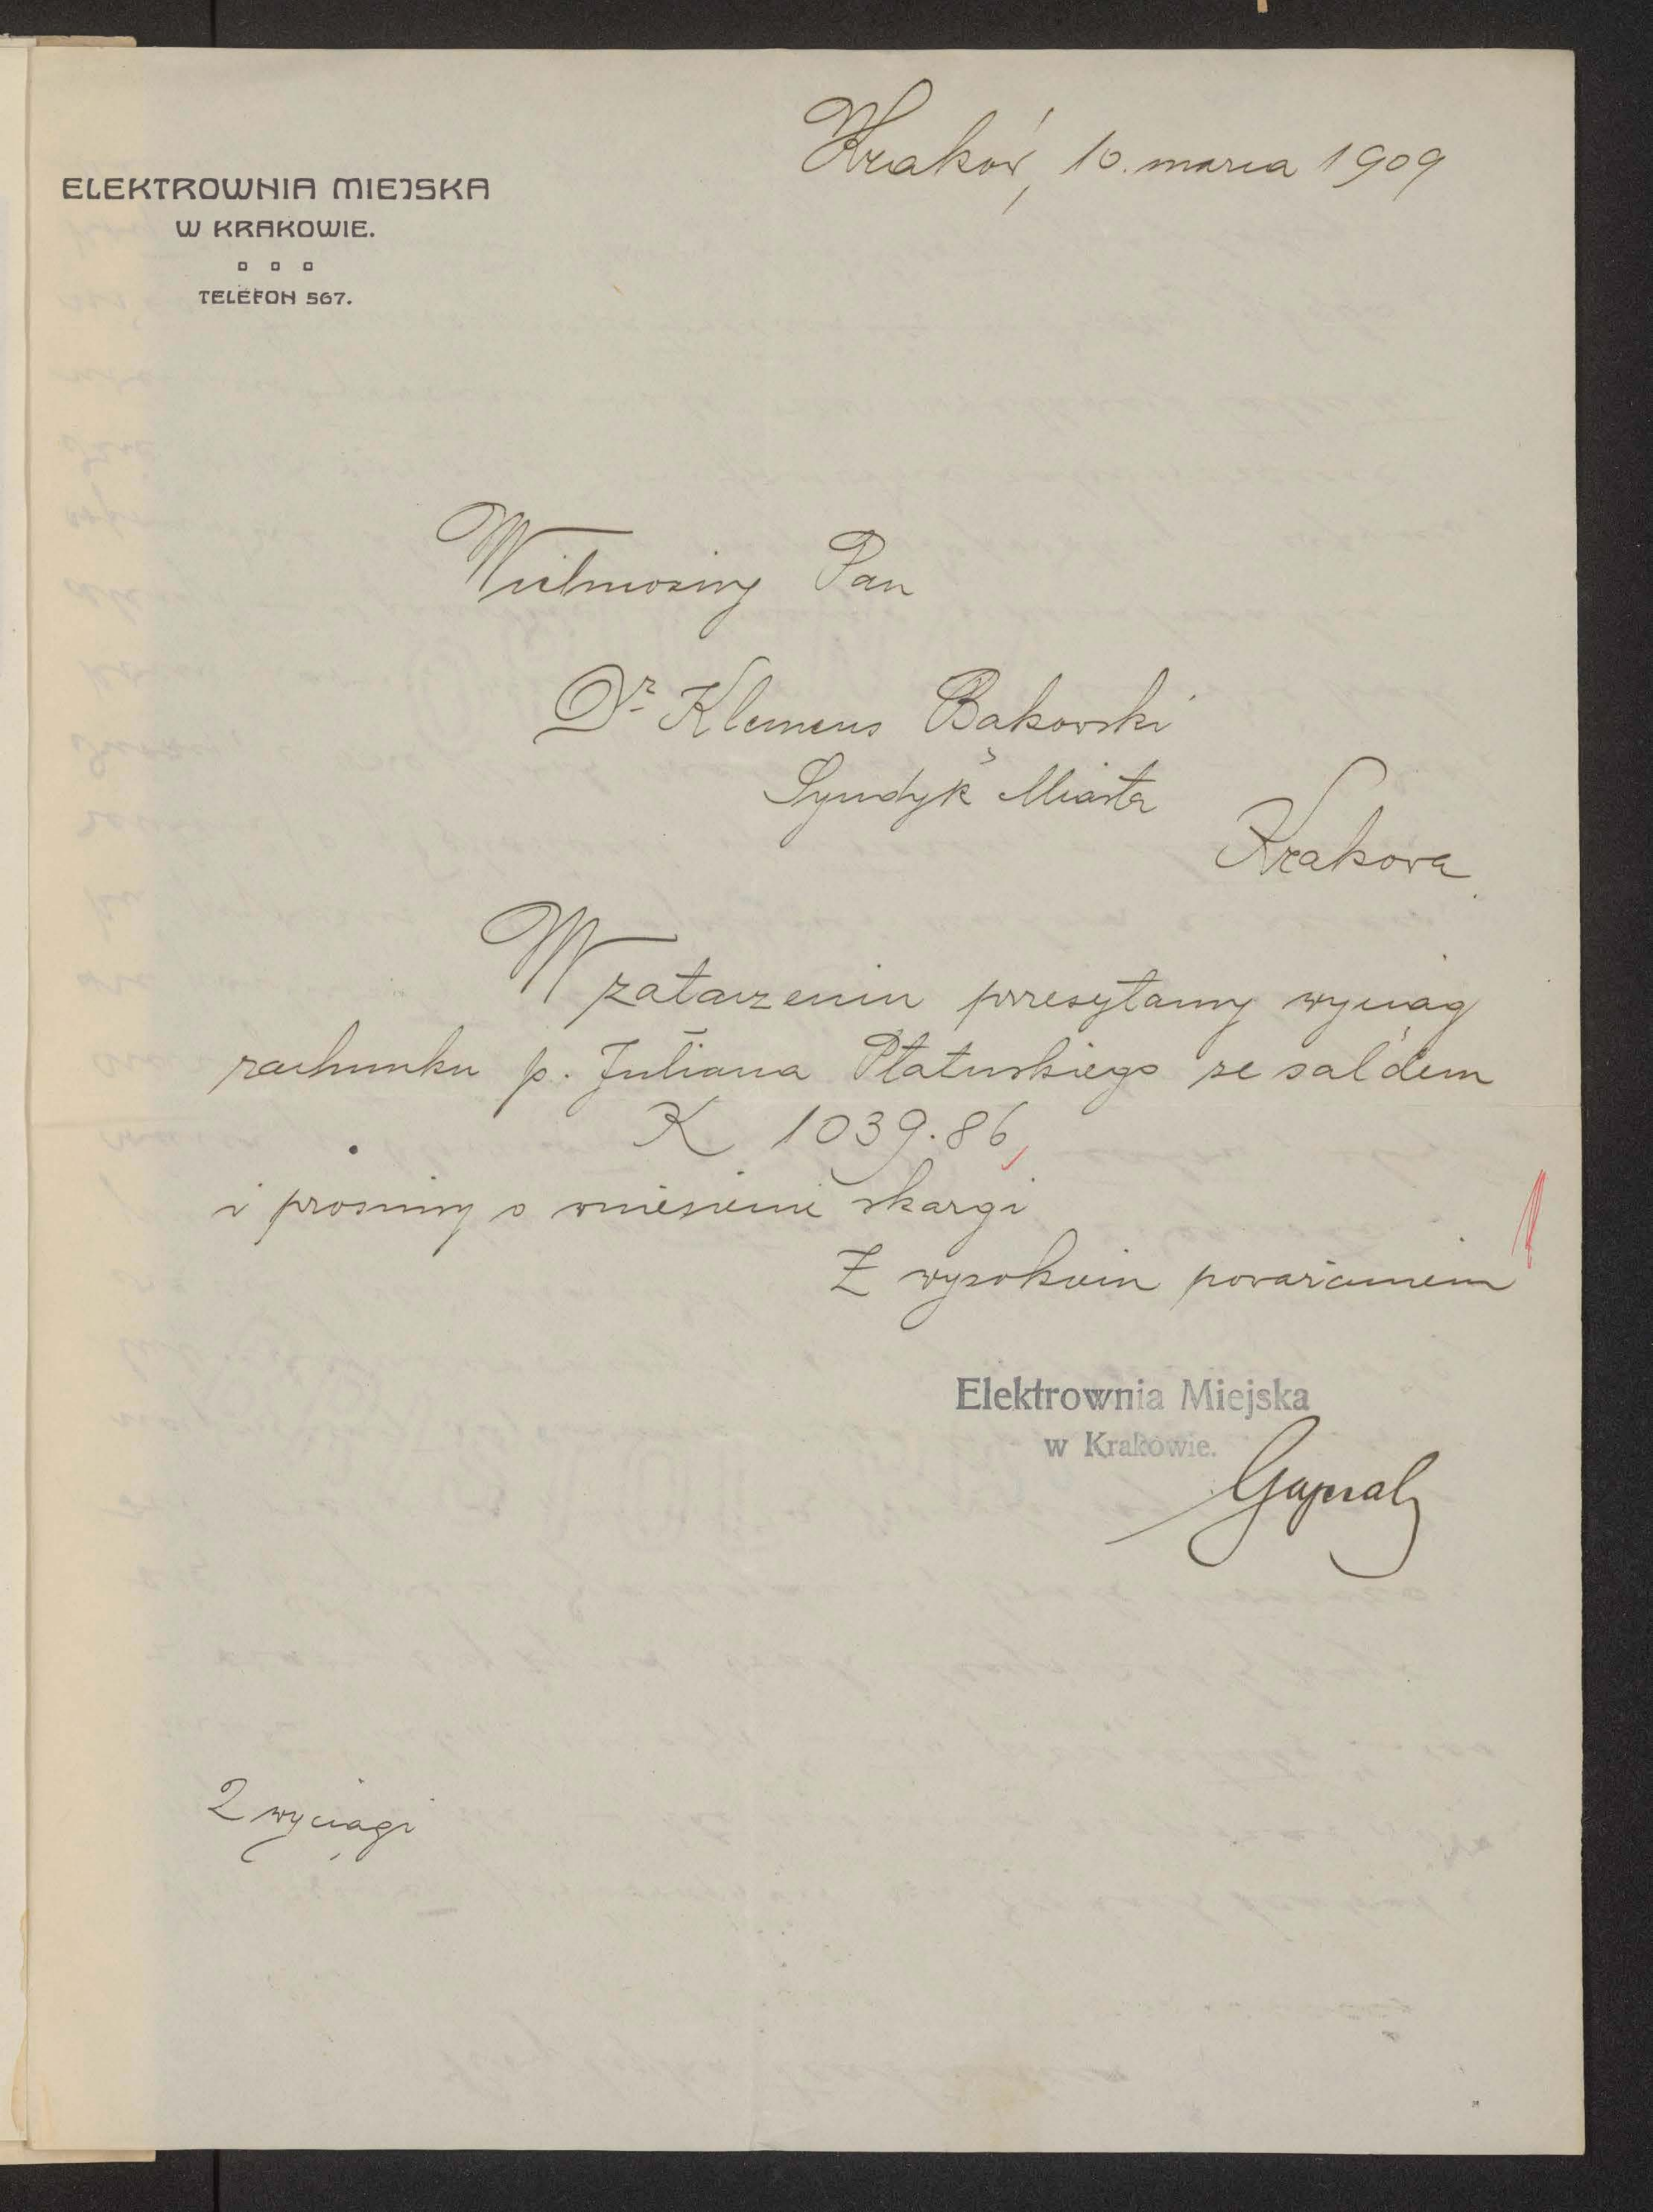 Kraków, 10. marca 1909
ELEKTROWNIA MIEJSKA
W KRAKOWIE.
TELEFON 567.
Wielmożny Pan
Dr Klemens Bąkowski
Syndyk Miasta
Krakowa
W załączeniu przesyłamy wyciąg
rachunku p. Juliana Płatuskiego ze saldem
K 1039.86,
i prosimy o wniesienie skargi
Z wysokiem poważaniem
Elektrownia Miejska
w Krakowie.
2 wyciągi